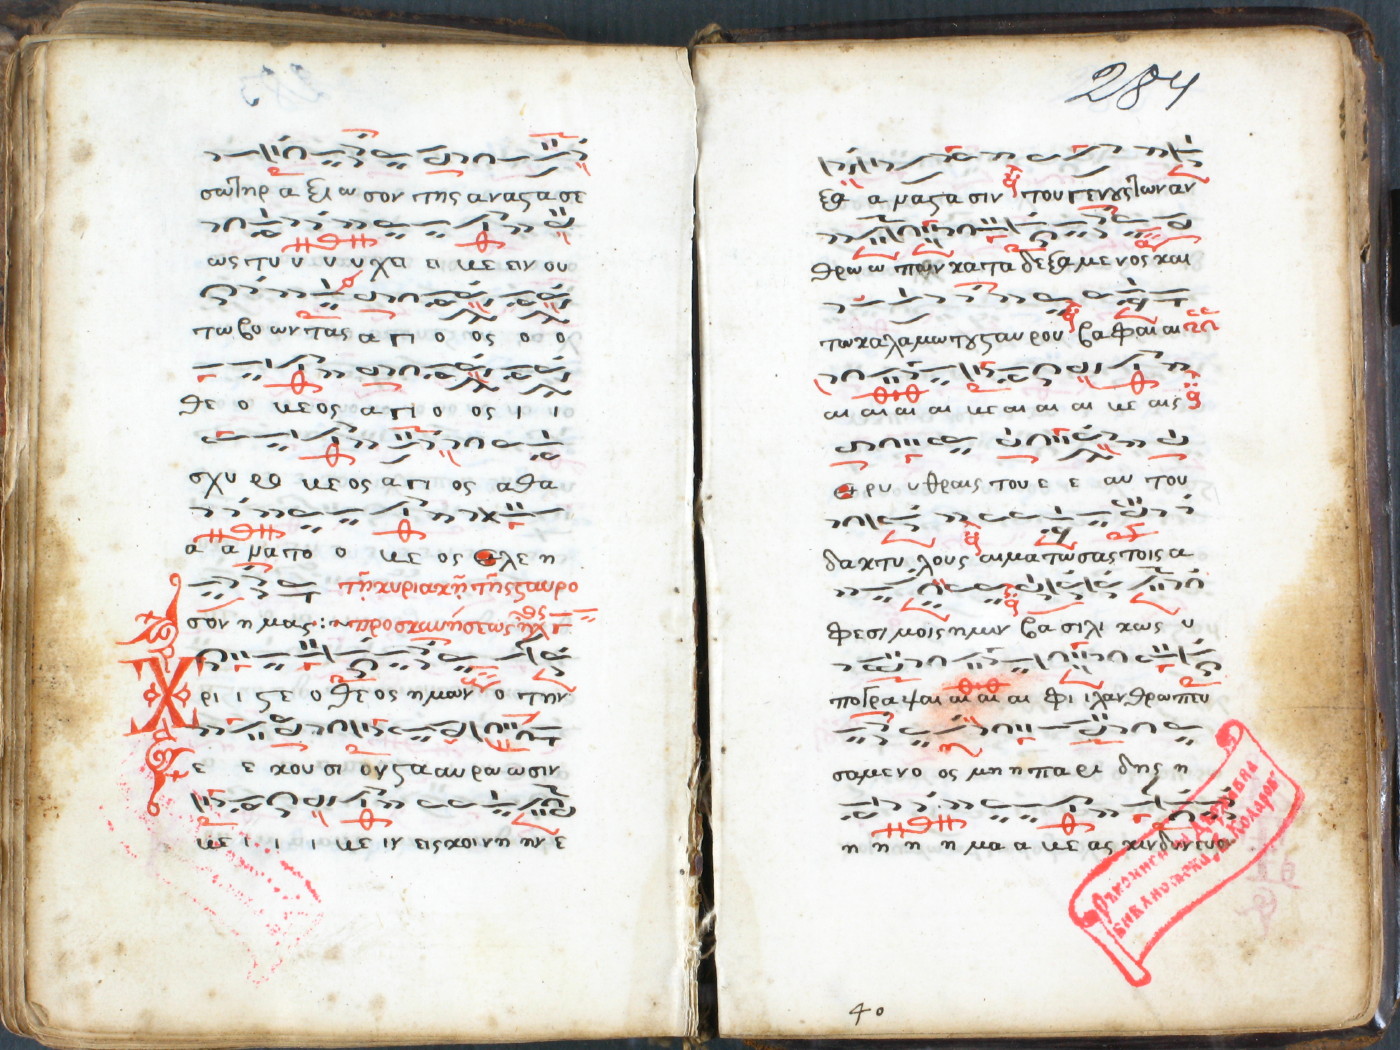 σωτηρ α ξι ω σον της αναϛα σε
ως τυ υ υ υ χει ει με ειν ου
τω βο ων τας α γι ο ος ο ο
θε ο με ος α γι ο ος ι ι
σχυ ρο με ος α γι ος α θα
α α μα το ο με ος ελε η
τῆ κυριακῆ τῆς ϛαυρο
σον η μας :~ προσκυνήσεως ἦχ
Χρι ι ϛε ο θε ος η μων ο την
ε ε κου σι ον ϛα αυ ρω ω σιν
με ι ι ι με ιν εις κοι νη ην ε
284
εξ α α να ϛα σιν του γενους των αν
θρω ω πων κα τα δεξα με νος και
τω κα λα μω του ϛαυ ρου βα φαι αι
αι αι αι αι με αι αι αι με αις
ε ρυ υ θραις του ε ε αυ του
δα κτυ λους αι μα τω σας τοις α
φε σι μοις η μιν βα σι λι κως υ
πο γρα ψαι αι αι αι φι ι λαν θρω πευ
σα με νο ος μη η πα ρι δης η
η η η η μα α με ας κιν δυ νευον
Ръкописи Държавна
Библиотека В. Коларов
40